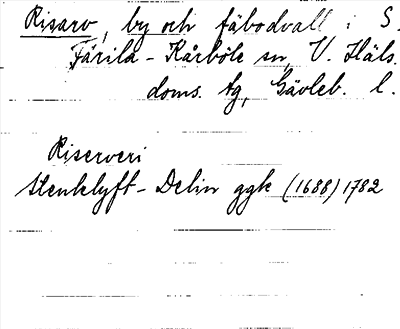 Risarv, by och fäbodvall i S.
Färila-Kårböle sn, V. Häls.
doms. tg, Gävleb. l.
Riserveri
Stenklyft-Delin ggk (1688) 1782